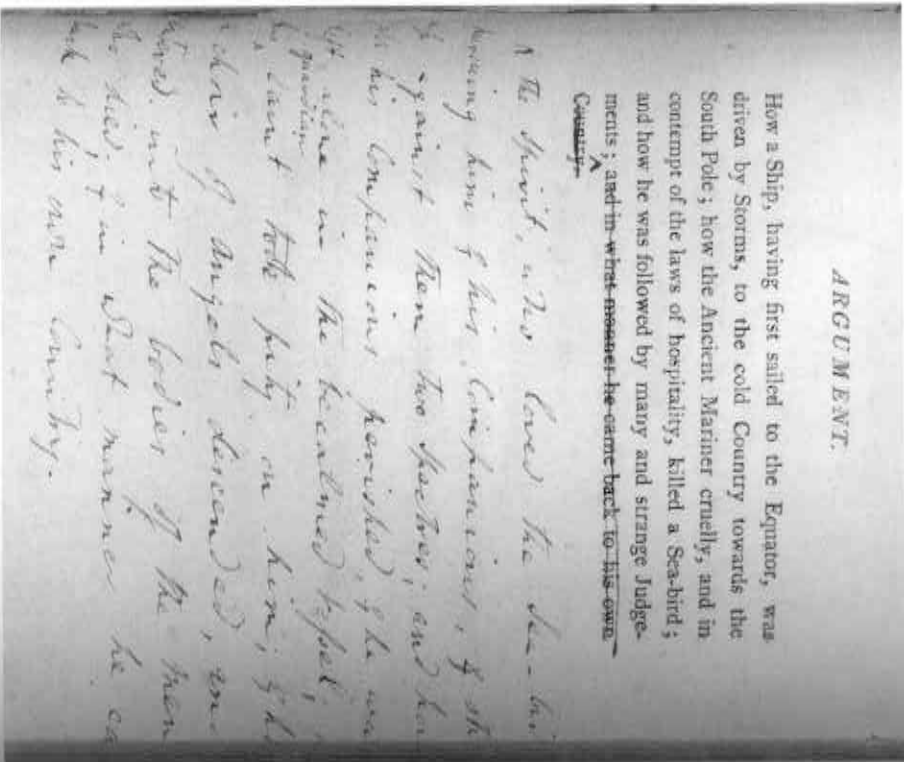 ARGUMENT.
How a Ship, having first sailed to the Equator, was
driven by Storms, to the cold Country towards the
South Pole; how the Ancient Mariner cruelly, and in
contempt of the laws of hospitality, killed a Sea-bird;
and how he was followed by many and strange Judge-
ments; ^ and in what manner he came back to his own
Country.
^ The Spirit, who loved the Sea-bi
him of his Companions, & sti
against them two spectres; and how
his Companions perished, & he was
left alone in the becalmed Vessel;
guardian
Saint took pity on him; & h
choir of Angels descended, and
into the bodies of the men
who died; & in what manner he ca
back to his own Country.